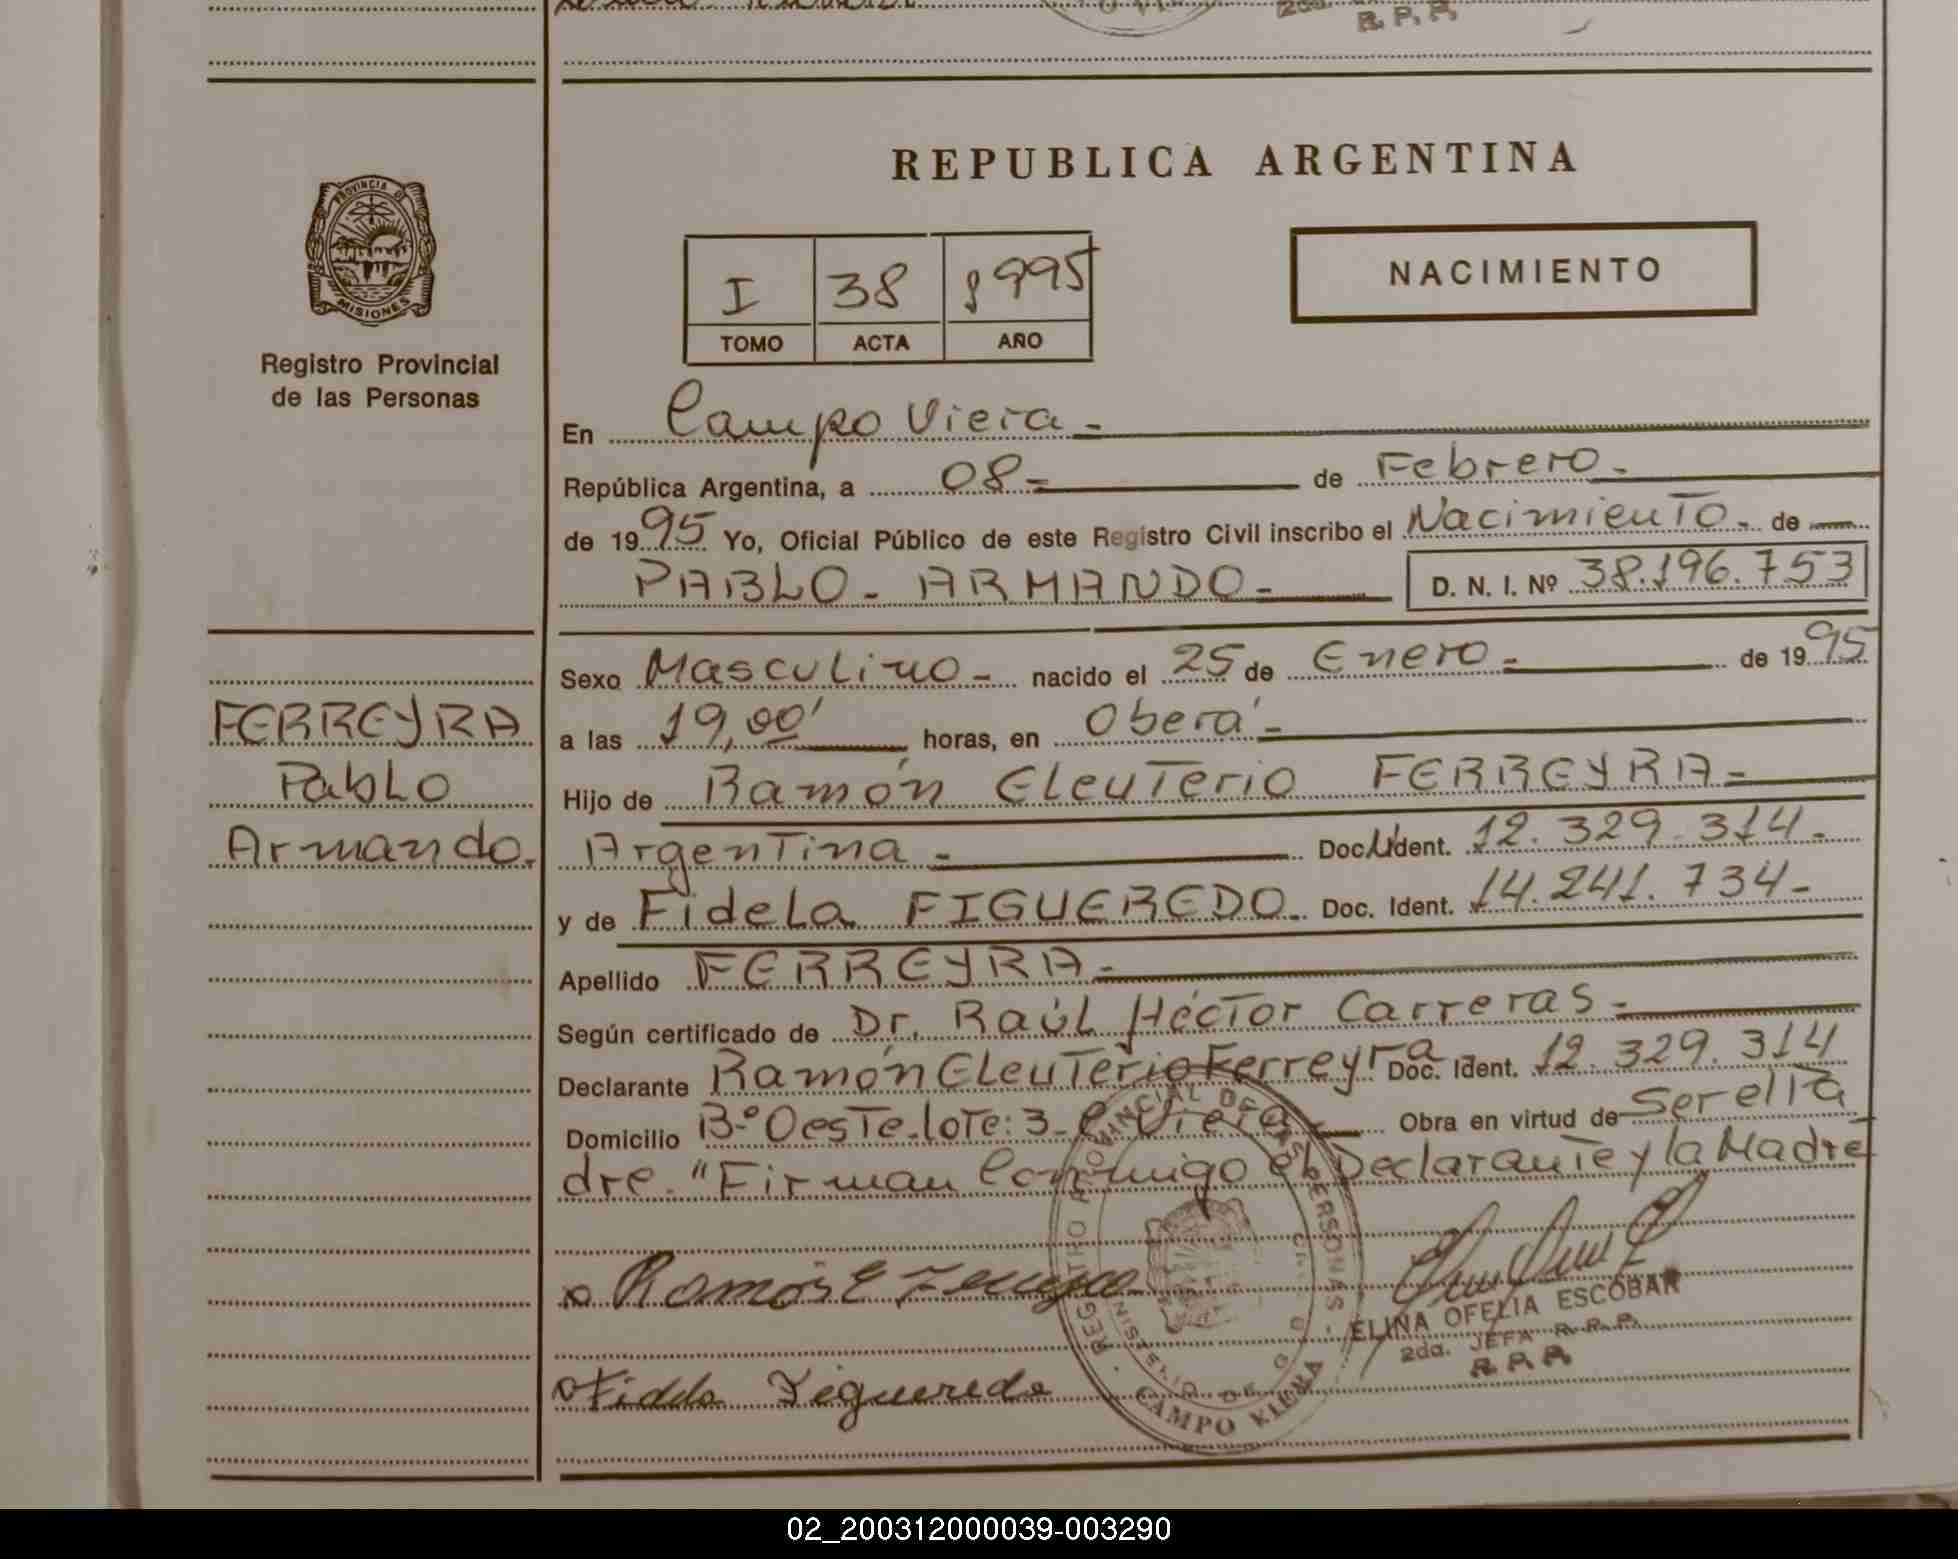 R. P. P.
REPUBLICA ARGENTINA
PROVINCIA D
MISIONES
Registro Provincial
de las Personas
I 38 1995
TOMO ACTA AÑO
NACIMIENTO
En Campo Viera -
República Argentina, a 08 - de Febrero -
de 1995 Yo, Oficial Público de este Registro Civil inscribo el Nacimiento - de
PABLO - ARMANDO - D. N. I. Nº 38.196.753
Sexo Masculino - nacido el 25 de Enero - de 1995
FERREYRA
Pablo
Armando.
a las 19,00' horas, en Oberá -
Hijo de Ramón Eleuterio FERREYRA -
Argentina - Doc. Ident. 12.329.314 -
y de Fidela FIGUEREDO - Doc. Ident. 14.241.734 -
Apellido FERREYRA -
Según certificado de Dr. Raúl Héctor Carreras -
Declarante Ramón Eleuterio Ferreyra Doc. Ident. 12.329.314
Domicilio Bº Oeste - lote: 3 - C. Viera - Obra en virtud de Ser el Pa
dre. "Firman Conmigo el Declarante y la Madre
Ramón E Ferreyra
Fidela Figueredo
REGISTRO PROVINCIAL DE LAS PERSONAS - CAMPO VIERA
ELINA OFELIA ESCOBAR
2da. JEFA R. P. P.
R. P. P.
02_200312000039-003290